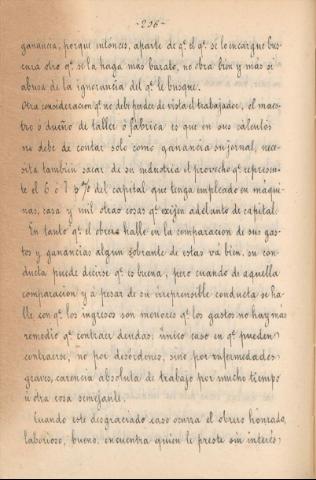 -206-
ganancia, porque entonces, aparte de q.e el q.e se lo encargue bus-
cara otro q.e se la haga mas barato, no obra bien y mas si
abusa de la ignorancia del q.e le busque.
Otra consideracion q.e no debe perder de vista el trabajador, el maes-
tro ó dueño de taller ó fabrica es que en sus calculos
no debe de contar solo como ganancia su jornal, nece-
sita tambien sacar de su industria el provecho q.e represen-
te el 6 ó 7 o% del capital que tenga empleado en maqui-
nas, casa y mil otras cosas q.e exijen adelanto de capital.
En tanto q.e el obrero halle en la comparacion de sus gas-
tos y ganancias algun sobrante de estas vá bien, su con-
ducta puede decirse q.e es buena, pero cuando de aquella
comparacion y á pesar de su irreprensible conducta se ha-
lle con q.e los ingresos son menores q.e los gastos no hay mas
remedio q.e contraer deudas: único caso en q.e pueden
contraerse, no por desórdenes, sino por enfermedades
graves, carencia absoluta de trabajo por mucho tiempo
ú otra cosa semejante.
Cuando este desgraciado caso ocurra el obrero honrado,
laborioso, bueno, encuentra quien le preste sin interés,